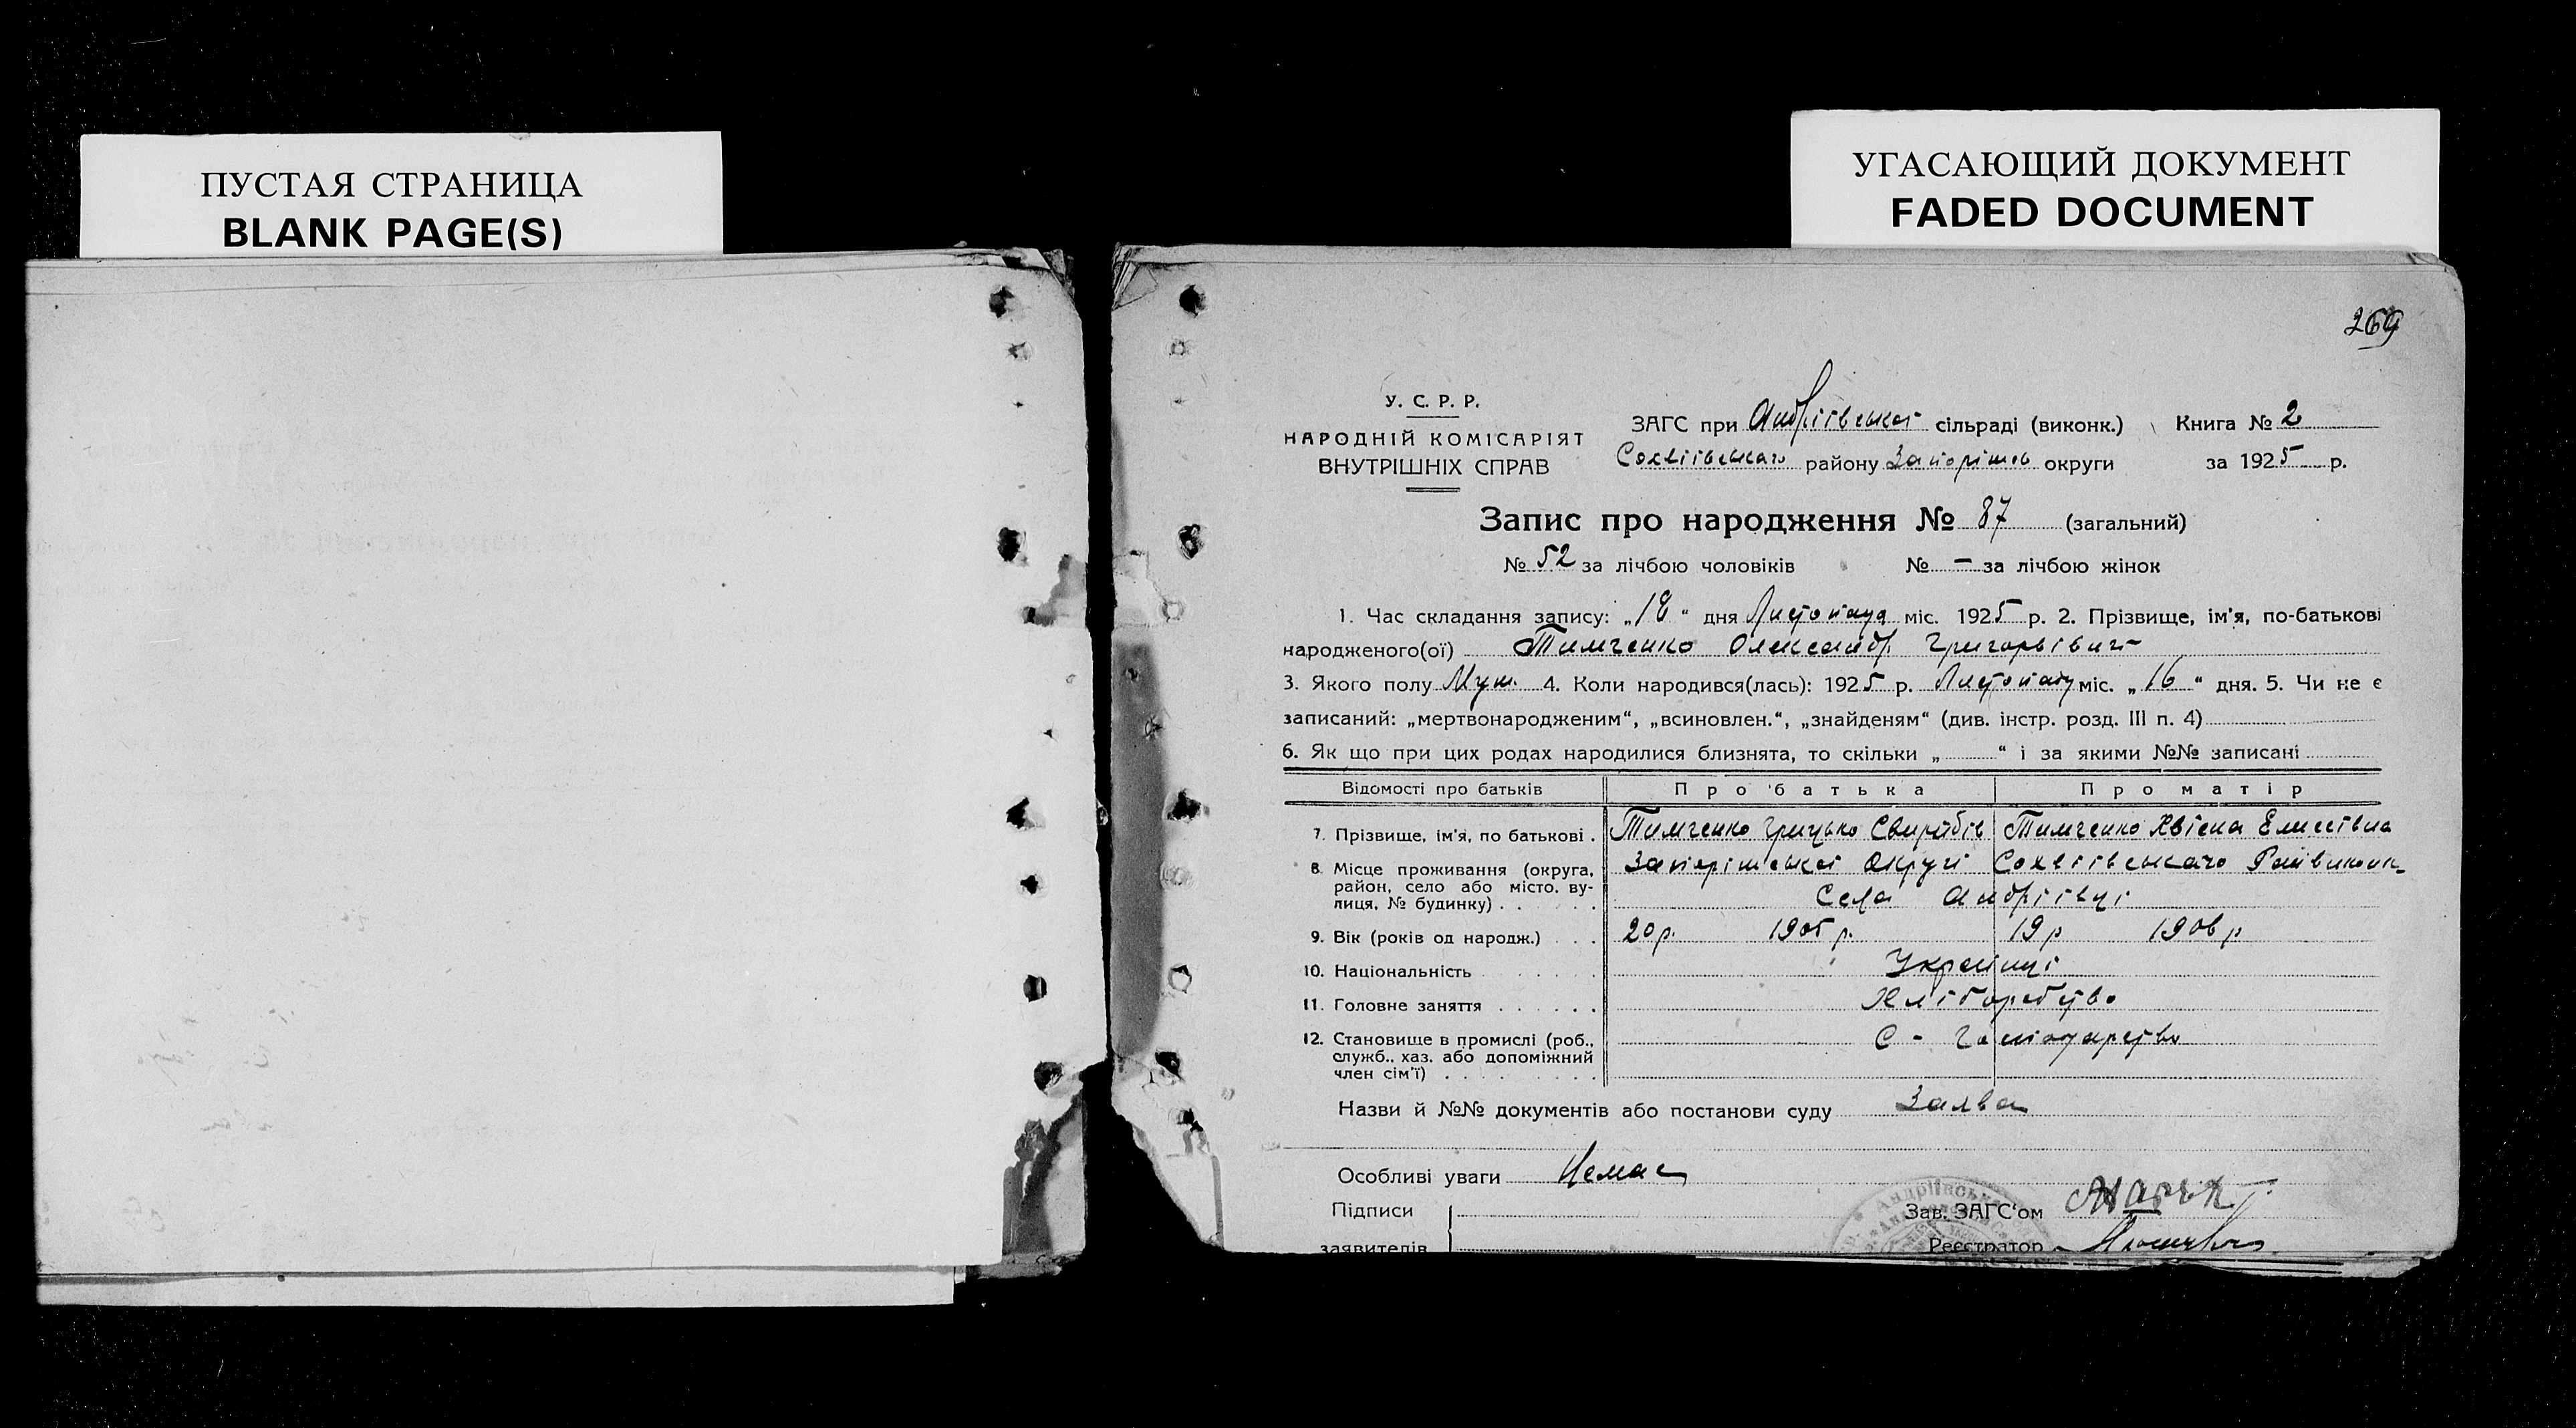 ПУСТАЯ СТРАНИЦА
BLANK PAGE(S)
УГАСАЮЩИЙ ДОКУМЕНТ
FADED DOCUMENT
269
У. С. Р. Р.
НАРОДНІЙ КОМІСАРІЯТ
ВНУТРІШНІХ СПРАВ
ЗАГС при Андріївськоі сільраді (виконк.) Книга № 2
району Запоріжов округи за 1925 р.
Запис про народження № 87 (загальний)
№ 52 за лічбою чоловіків № — за лічбою жінок
1. Час складання запису: „18“ дня Листопада міс. 1925 р. 2. Прізвище, ім'я, по-батькові
народженого(ої) Тимченко Олександр Григорьівич
3. Якого полу Муж. 4. Коли народився(лась): 1925 р. Листопаду міс. „16“ дня. 5. Чи не є
записаний: „мертвонародженим“, „всиновлен.“, „знайденям“ (див. інстр. розд. III п. 4)
6. Як що при цих родах народилися близнята, то скільки „ “ і за якими №№ записані
Відомості про батьків Про батька Про матір
7. Прізвище, ім'я, по батькові . Тимченко Грицько Тимченко Елисеівна
8. Місце проживання (округа, Запоріжськоі Округі
район, село або місто, ву-
лиця, № будинку) . . . . Села Андріівці
9. Вік (років од народж.) . . . 20 р. 1905 р. 19 р 1906 р
10. Національність . . . . . Украінці
11. Головне заняття . . . . . . Хліборобство
12. Становище в промислі (роб., С - Господарство
служб., хаз. або допоміжний
член сім'ї) . . . . . . .
Назви й №№ документів або постанови суду Заява
Особливі уваги Немає
Підписи
заявителів
Зав. ЗАГС'ом
Реєстратор